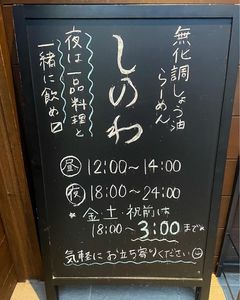 無化調しょう油
らーめん
しのわ
夜は一品料理と
一緒に飲め〼
昼 12:00〜14:00
夜 18:00〜24:00
* 金・土・祝前は
18:00〜3:00まで*
気軽にお立ち寄りください